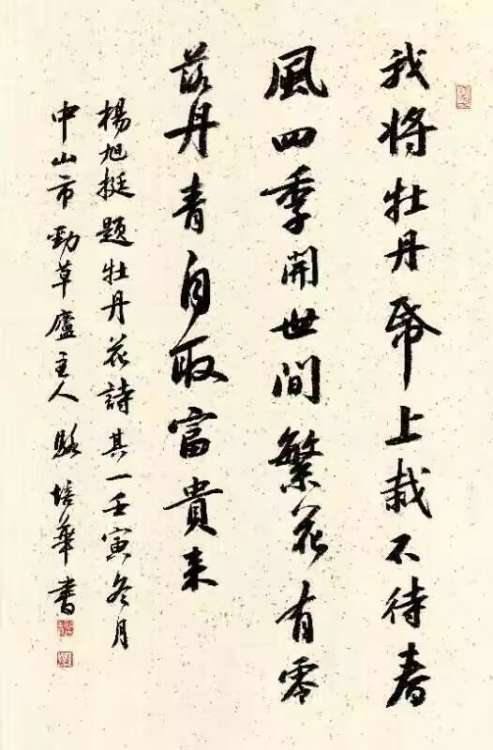 我将牡丹帋上栽不待春
風四季開世間繁花有零
落丹青自取富貴来
楊旭挺題牡丹花詩其一壬寅冬月
中山市勁草廬主人駱培華書